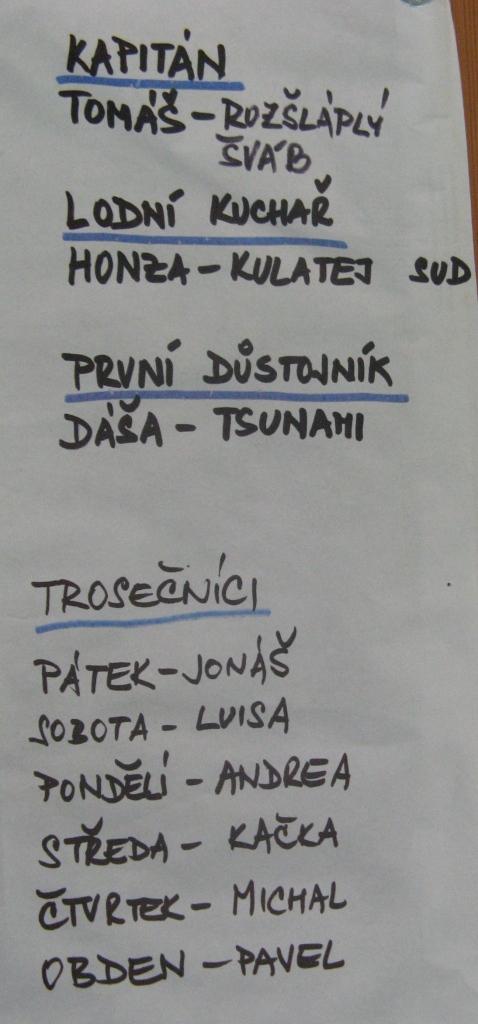 KAPITÁN
TOMÁŠ - ROZŠLÁPLÝ
ŠVÁB
LODNÍ KUCHAŘ
HONZA - KULATEJ SUD
PRVNÍ DŮSTOJNÍK
DÁŠA - TSUNAMI
TROSEČNÍCI
PÁTEK - JONÁŠ
SOBOTA - LUISA
PONDĚLÍ - ANDREA
STŘEDA - KAČKA
ČTVRTEK - MICHAL
OBDEN - PAVEL